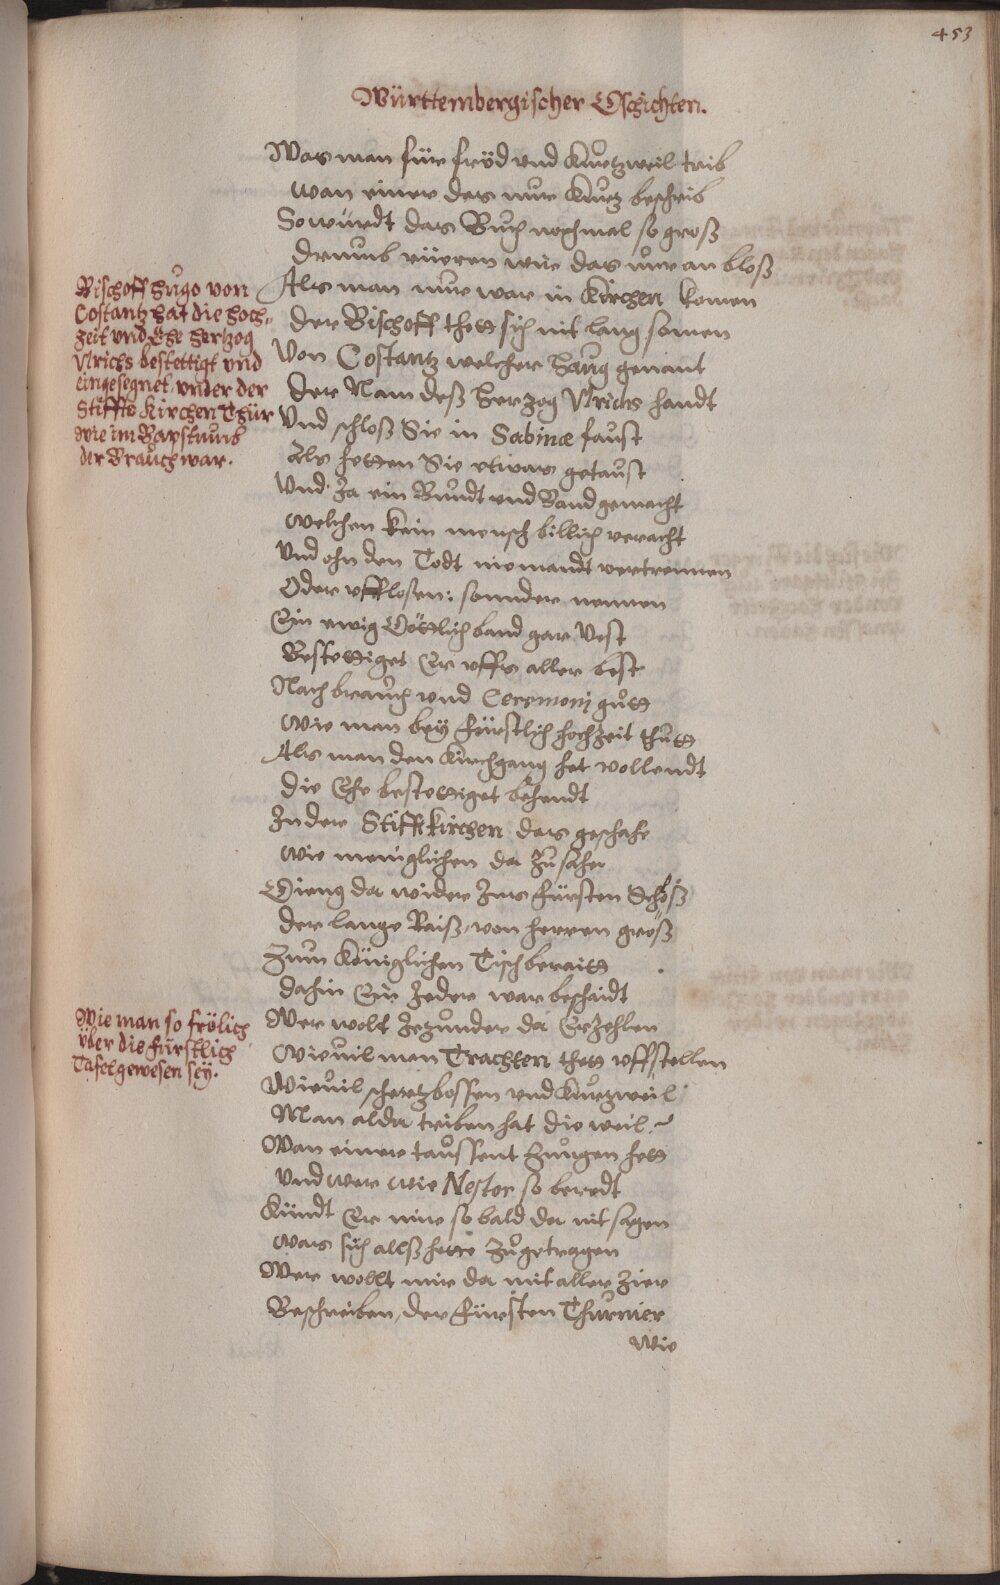 453
Württembergischer Gschichten.
Was man für fröd vnd Kurtzweil trib
wan einer das nur Kurtz beschrib
So würdt das Buch nochmal so gross
drumb rüeren wir das nur an bloß
Als man nur war in Kirchen komen
Bischoff Hugo von
Costantz hat die hoch-
zeit vnd Ehe Hertzog
Vlrichs bestettigt vnd
eingesegnet, vnder der
Stiffts Kirchen Thür
wie im Bapstumb
der Brauch war.
Der Bischoff thett sich nit lang somen
Von Costantz welcher Haug genant
der Nam deß Herzog Vlrichs handt
Vnd schloß Sie in Sabinæ faust
Als hetten Sie etwas getaust
Vnd Ja ein Bundt vnd Band gemacht
welchen kein mensch billich veracht
Vnd ohn den Todt niemandt vertrennen
Oder vfflosen: sonnder nennen
Ein ewig Göttlich band gar Vest
Bestettiget Er vffs aller best
Nach brauch vnd Ceremonj gutt
wie man bey fürstlich hochzeit thutt
Als man den Kirchgang het vollendt
die Ehe bestettiget behendt
In der Stifftkirchen das geschahe
wie meniglichen da zu sahe
Gieng da wider Ins fürsten Schloß
der lange Raiß, von herren groß
Zum Königlichen Tisch beraitt
dahin Ein Jeder war beschaidt
Wie man so frölich
über die fürstlich
Tafel gewesen sey.
Wer wolt Jezunder da Erzehlen
Wieuil man Trachten thett vffstellen
Wieuil schertzbossen vnd Kurtzweil
Man alda triben hat die weil.
Wan einer taussent Zungen hett
vnd were wie Nestor so beredt
Kündt Er mir so bald da nit sagen
was sich allß hette zugetragen
Wer wollt mir da mit aller Zier
Beschreiben, der fürsten Thurnier
Wie